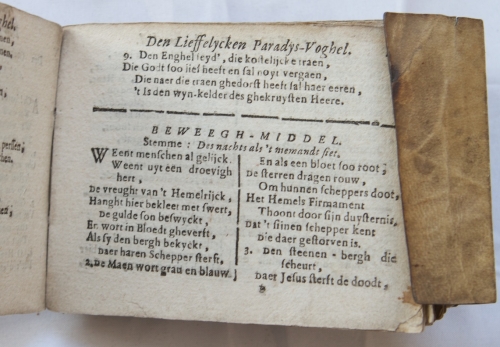 Den Lieffelycken Paradys-Voghel.
9. Den Enghel seyd', die kostelijcke traen,
Die Godt soo lief heeft en sal noyt vergaen,
Die naer die traen ghedorst heeft sal haer eeren,
't Is den wyn-kelder des ghekruysten Heere.
BEWEEGH-MIDDEL.
Stemme: Des nachts als 't niemandt siet.
WEent menschen al gelijck.
Weent uyt een droevigh
hert,
De vreught van 't Hemelrijck,
Hanght hier bekleet met swert,
De gulde son beswyckt,
En wort in Bloedt gheverft,
Als sy den bergh bekyckt,
Daer haren Schepper sterft,
2. De Maen wort grau en blauw.
En als een bloet soo root;
De sterren dragen rouw,
Om hunnen scheppers doot,
Het Hemels Firmament
Thoont door sijn duysternis,
Dat 't sijnen schepper kent
Die daer gestorven is.
3. Den steenen-bergh die
scheurt,
Daer Jesus sterft de doodt,